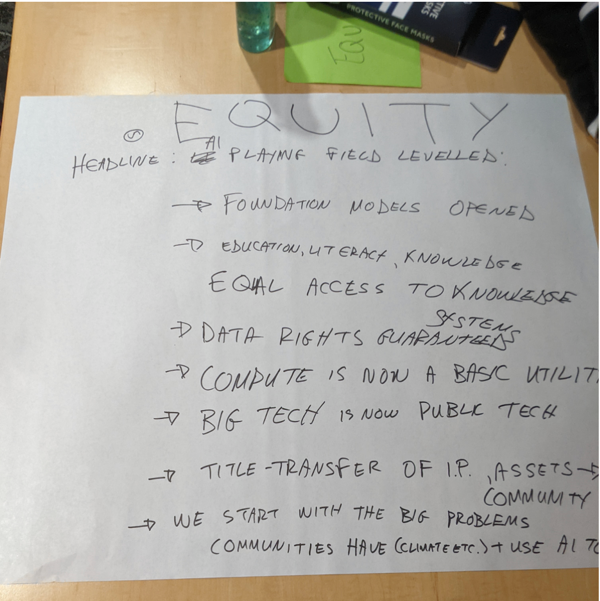 TIVE
MASKS
PROTECTIVE FACE MASKS
EQU
EQUITY
HEADLINE: AI PLAYING FIELD LEVELLED:
→ FOUNDATION MODELS OPENED
→ EDUCATION, LITERACY, KNOWLEDGE
EQUAL ACCESS TO KNOWLEDGE
SYSTEMS
→ DATA RIGHTS GUARANTEEDS
→ COMPUTE IS NOW A BASIC UTILIT
→ BIG TECH IS NOW PUBLIC TECH
→ TITLE-TRANSFER OF I.P., ASSETS →
COMMUNITY
→ WE START WITH THE BIG PROBLEMS
COMMUNITIES HAVE (CLIMATE ETC.) + USE AI TO